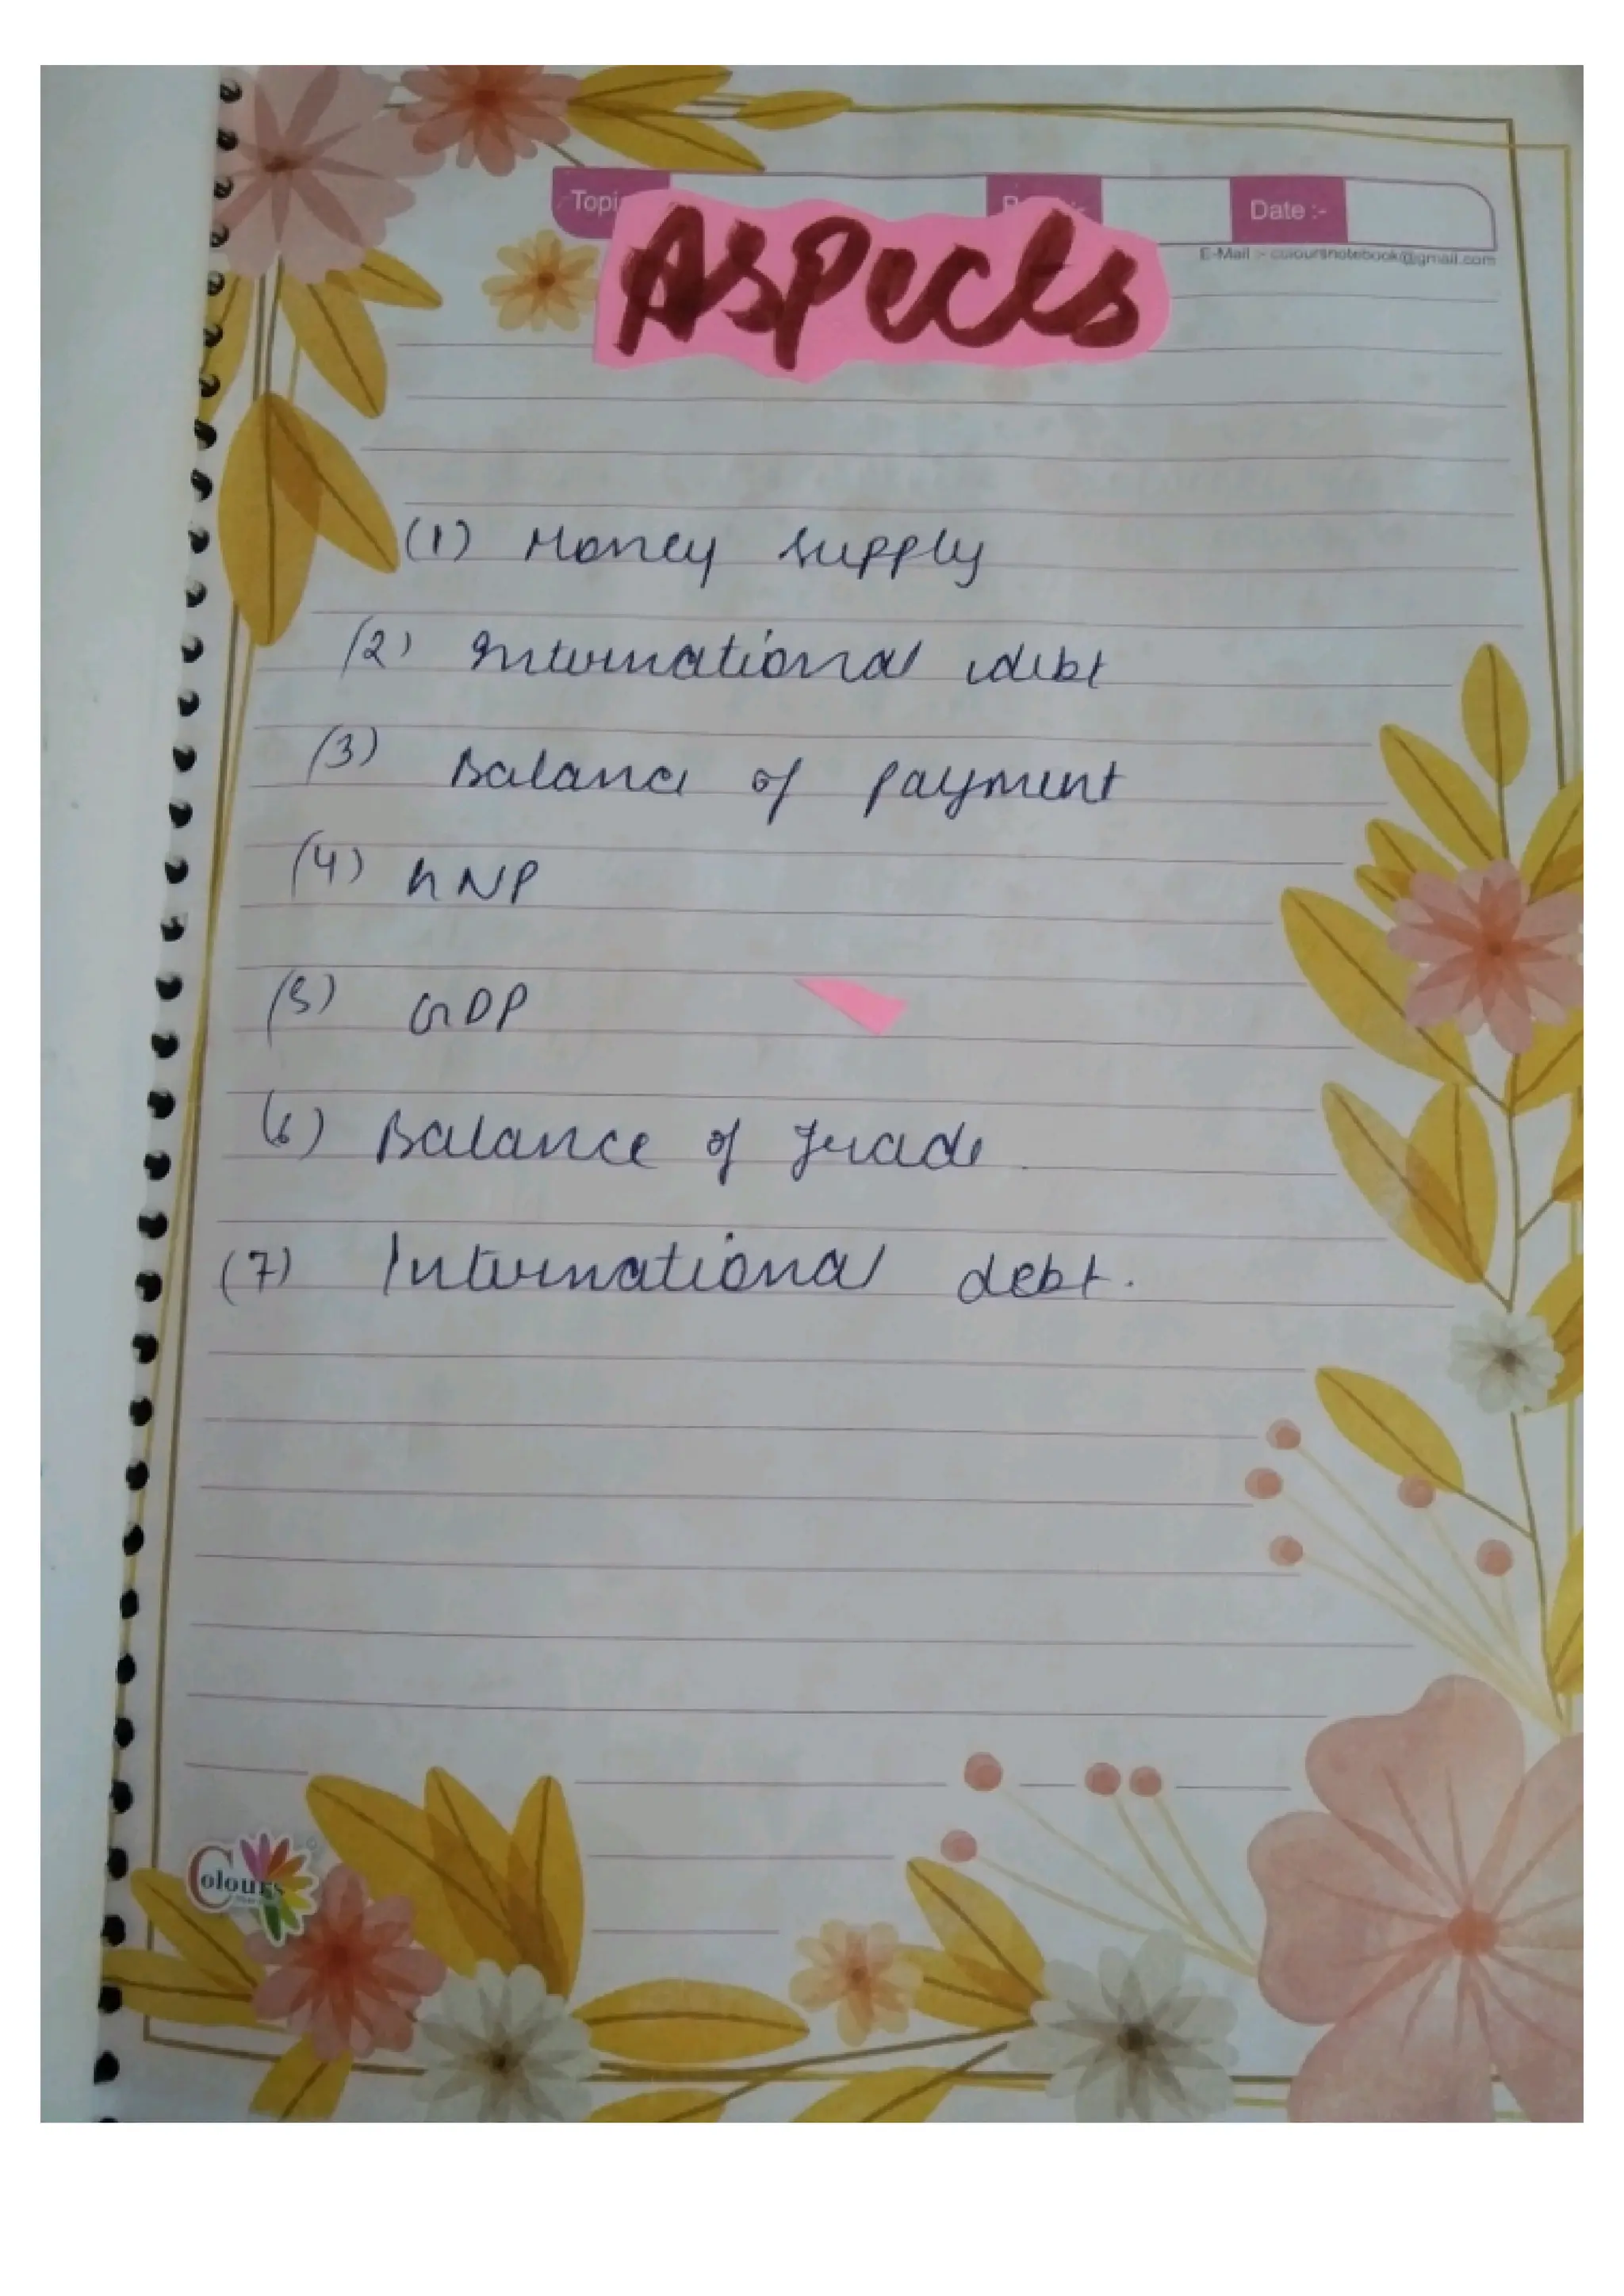 Topic
Date :-
Aspects
E-Mail :- coloursnotebook@gmail.com
(1) Money supply
(2) International debt
(3) Balance of payment
(4) GNP
(5) GDP
(6) Balance of Trade
(7) International debt.
Colours